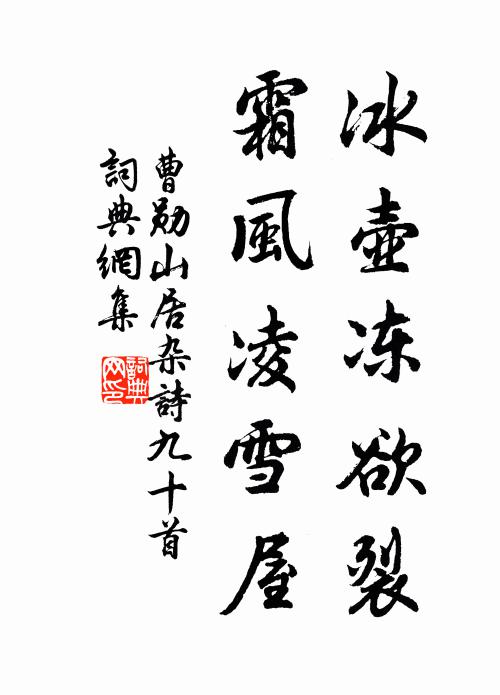 冰壺冻欲裂
霜風凌雪屋
曹勋山居杂詩九十首
詞典網集
詞典網印